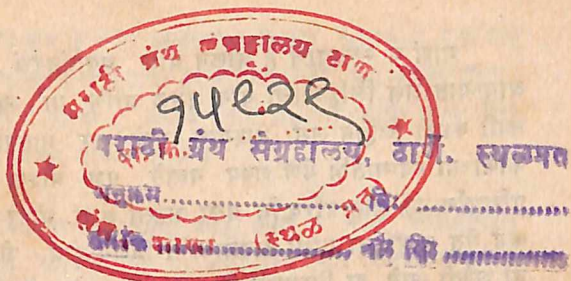 मराठी ग्रंथ संग्रहालय ठाणे
१५९२९
मराठी ग्रंथ संग्रहालय, ठाणें. स्थळप्रत
अनुक्रम .................... वि: ....................
क्रमांक .................... नोंः दिः ....................
शाखा (स्थळ प्रत)